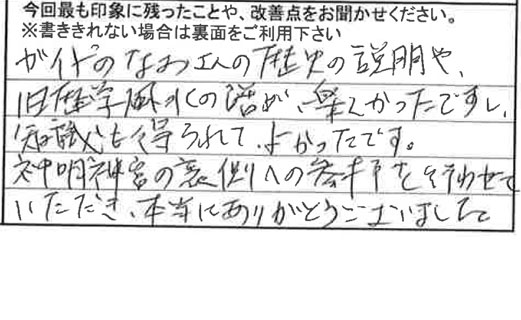 今回最も印象に残ったことや、改善点をお聞かせください。
※書ききれない場合は裏面をご利用下さい
ガイドのなお工人の歴史の説明や、
旧暦学風水の話が、楽しかったですし、
知識も得られて、よかったです。
神明神宮の裏側への参拝を行わせて
いただき、本当にありがとうございました